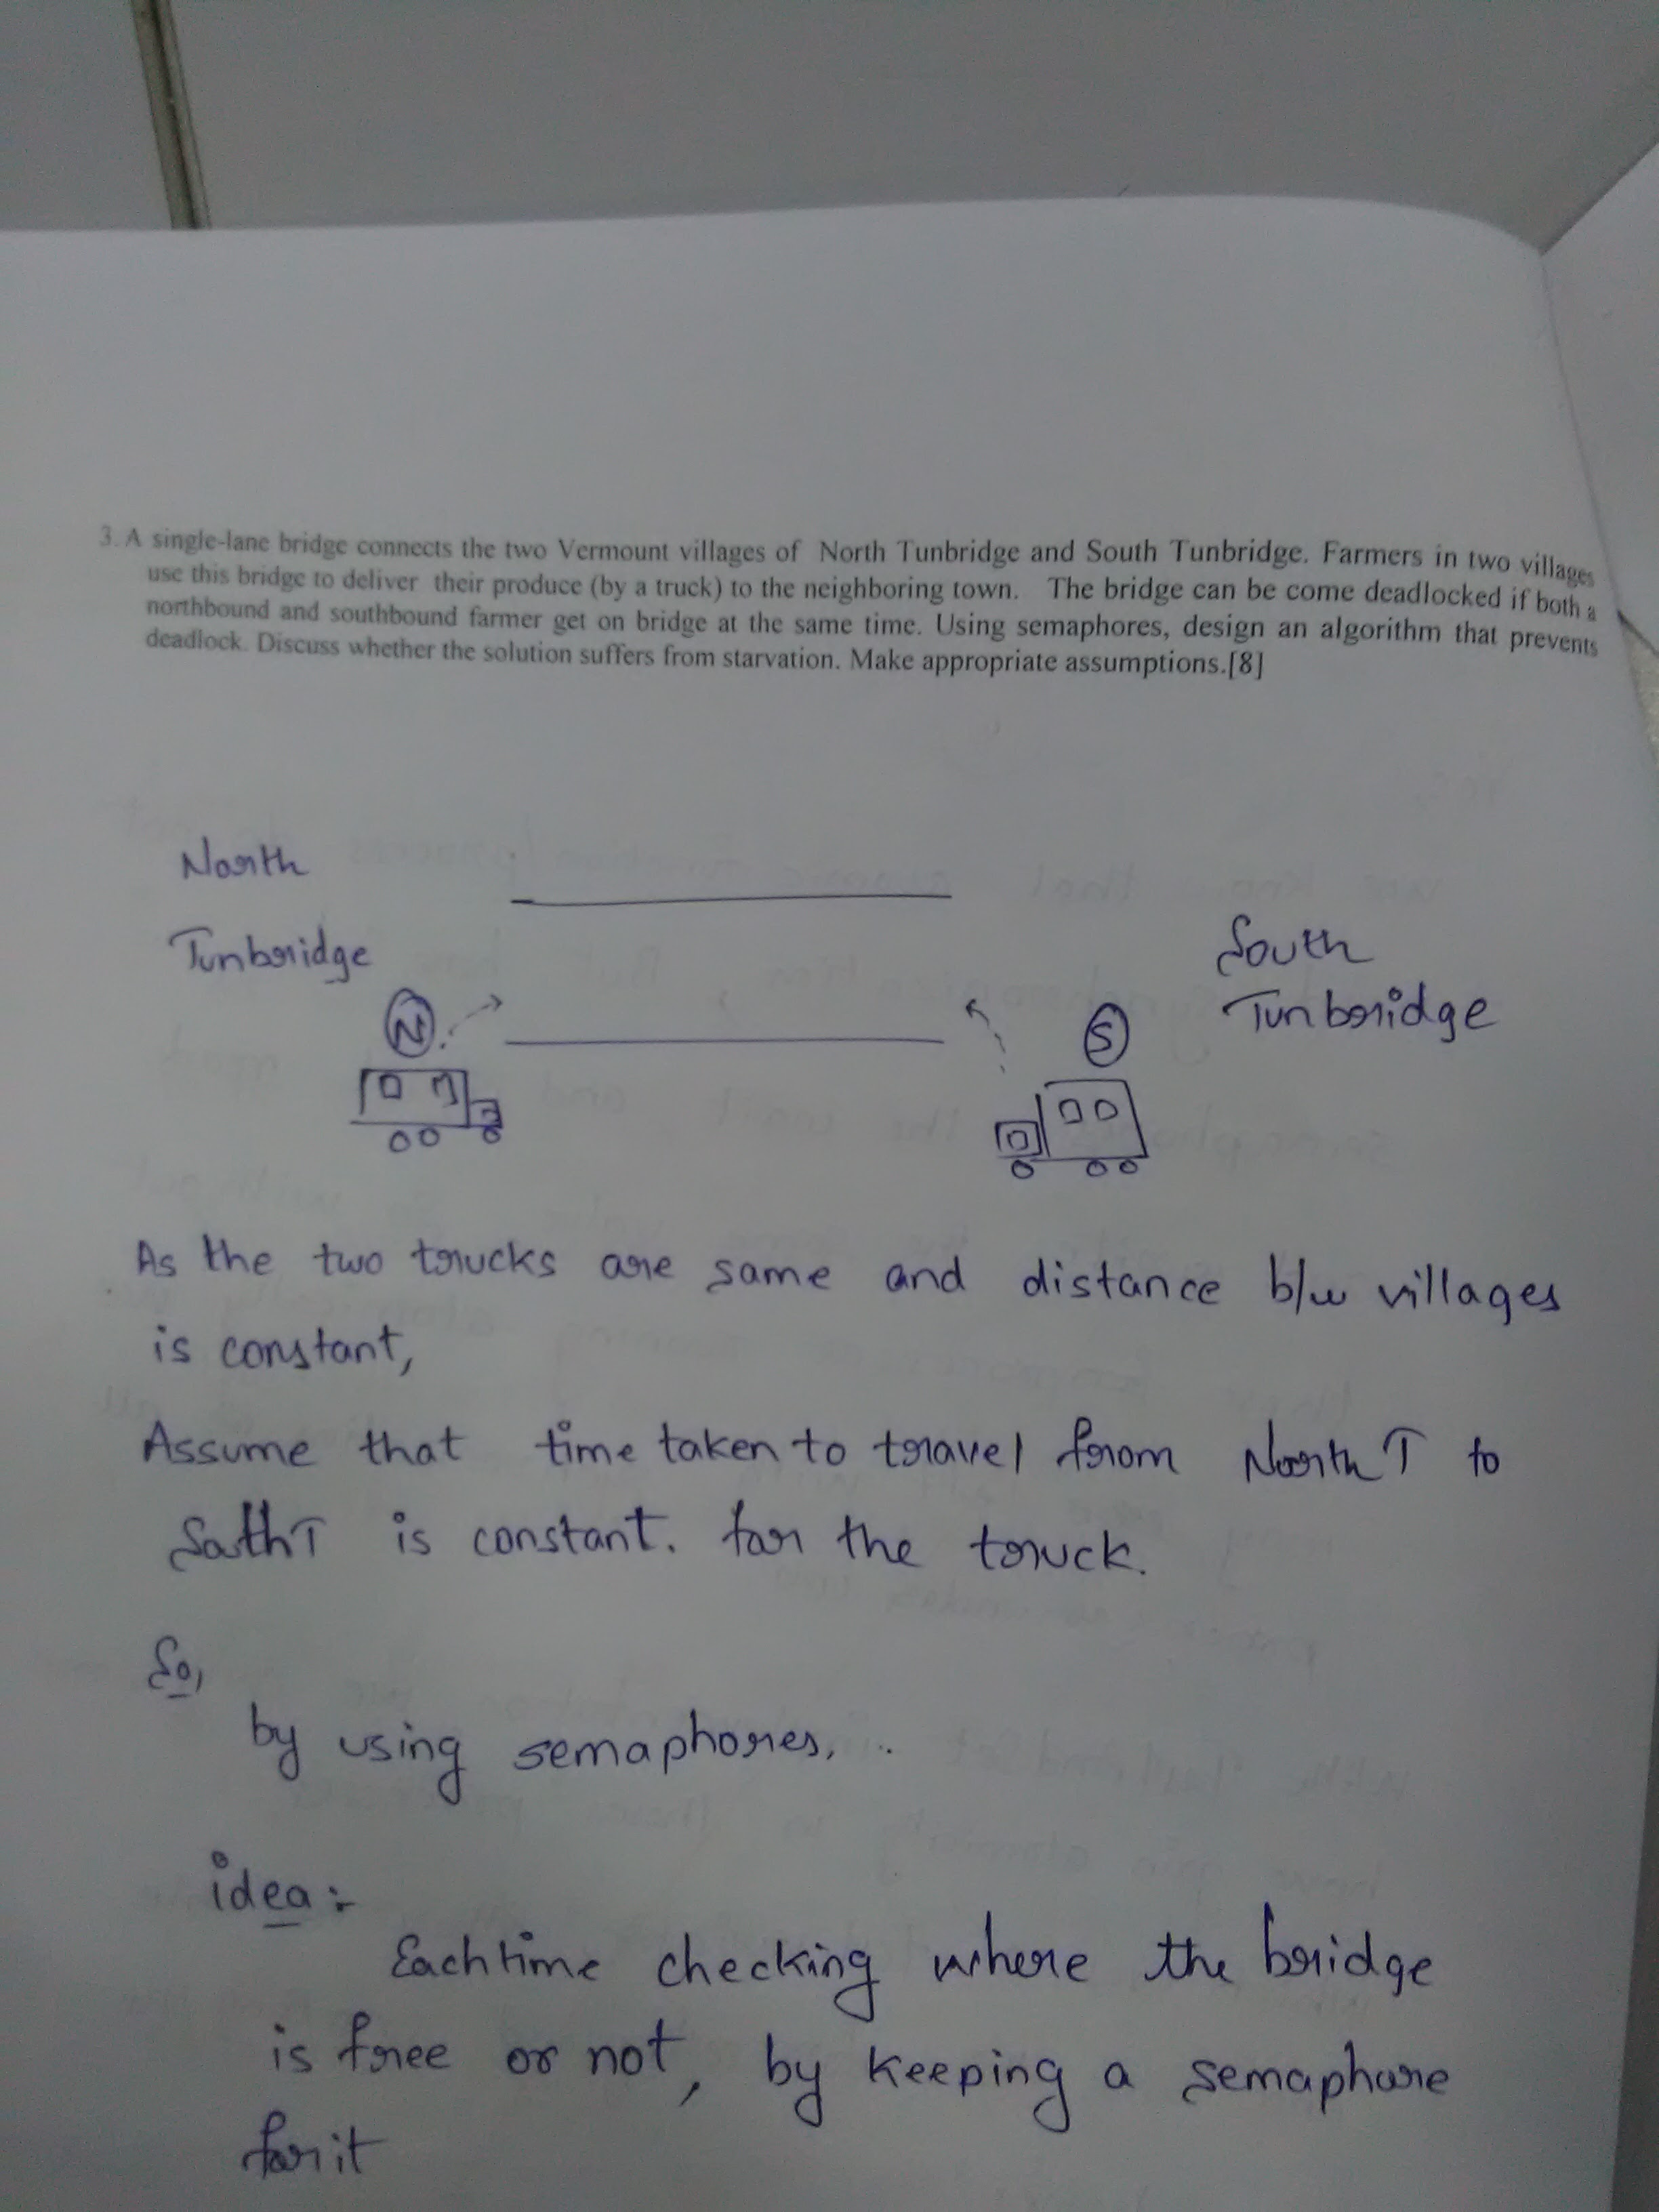 3. A single-lane bridge connects the two Vermount villages of North Tunbridge and South Tunbridge. Farmers in two villages
use this bridge to deliver their produce (by a truck) to the neighboring town. The bridge can be come deadlocked if both a
northbound and southbound farmer get on bridge at the same time. Using semaphores, design an algorithm that prevents
deadlock. Discuss whether the solution suffers from starvation. Make appropriate assumptions.[8]
North
Tunbridge
South
Tunbridge
N
S
As the two trucks are same and distance b/w villages
is constant,
Assume that time taken to travel from North T to
SouthT is constant. for the truck.
So,
by using semaphores, ..
idea :-
Eachtime checking where the bridge
is free or not, by keeping a semaphore
for it